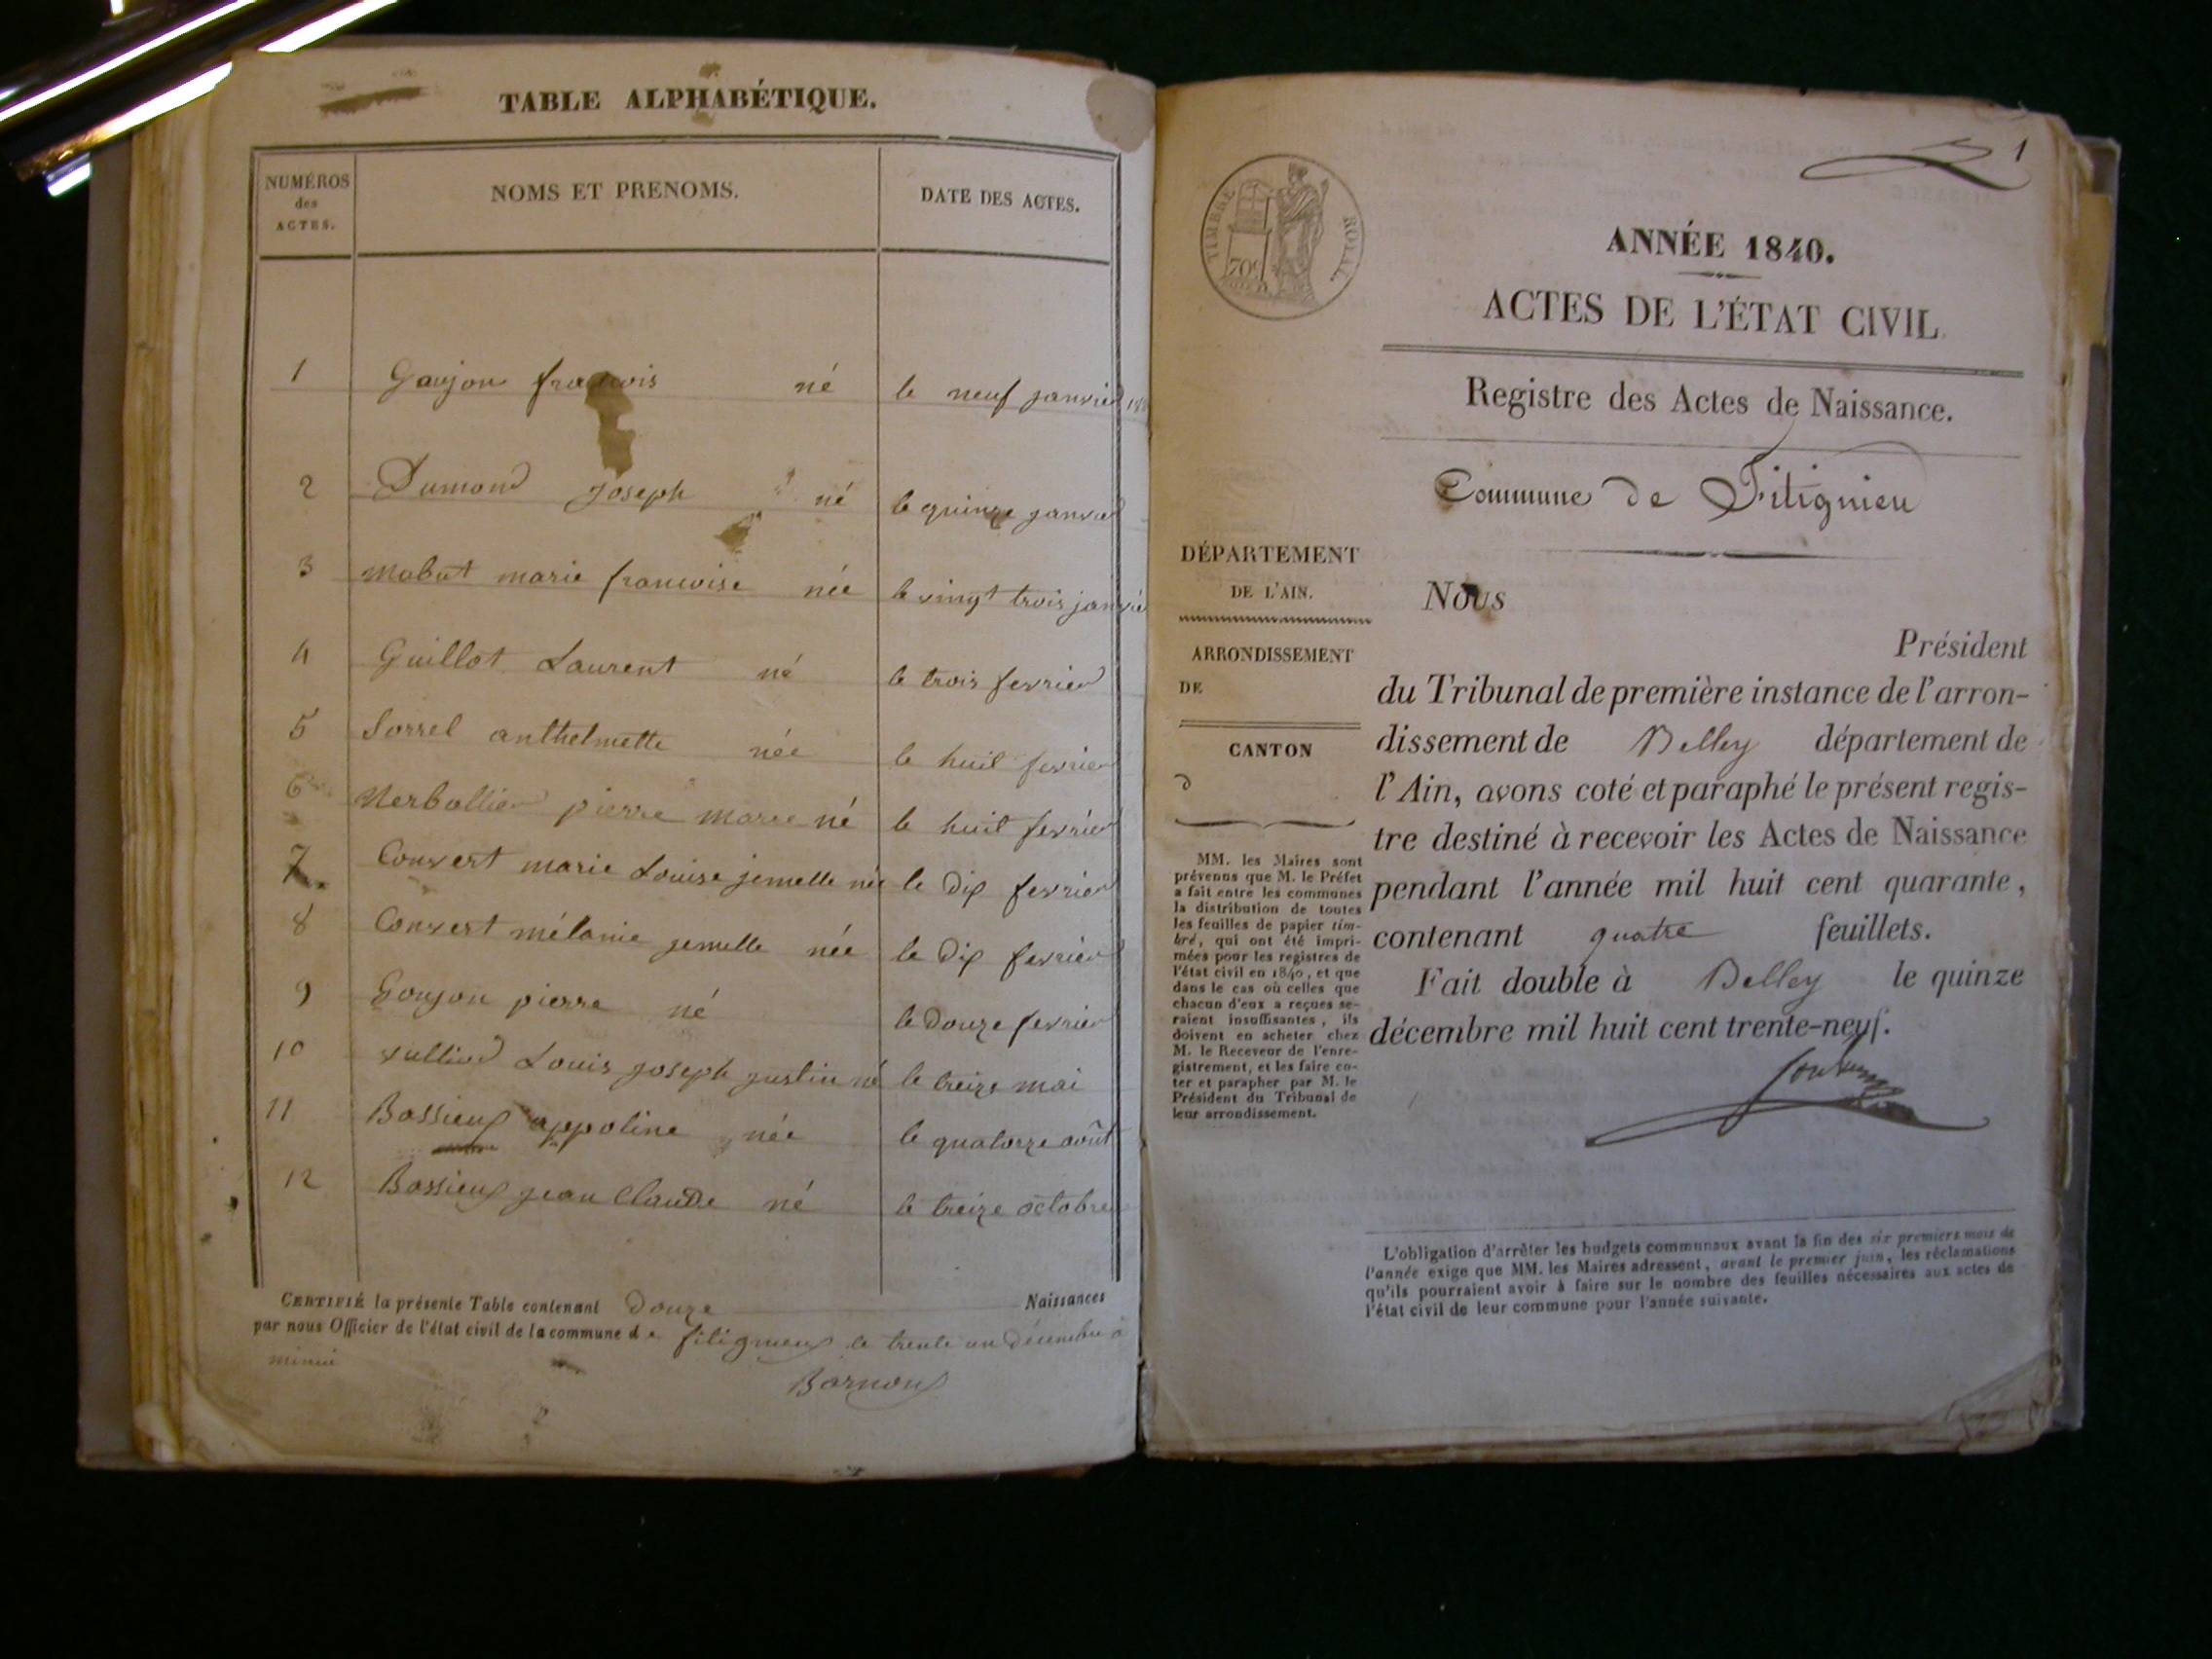 TABLE ALPHABÉTIQUE.
NUMÉROS des ACTES. NOMS ET PRENOMS. DATE DES ACTES.
1 Goujon francois né le neuf janvier
2 Dumond Joseph né le quinze janvier
3 mabut marie francoise née le vingt trois janvier
4 Guillot Laurent né le trois fevrier
5 Sorrel anthelmette née le huit fevrier
6 pierre marie né le huit fevrier
7 Convert marie Louise jemelle née le dix fevrier
8 Convert mélanie jemelle née le dix fevrier
9 Goujon pierre né le douze fevrier
10 vulliod Louis joseph justin né le treize mai
11 Bossieux appoline née le quatorze août
12 Bossieux jean Claude né le treize octobre
CERTIFIÉ la présente Table contenant Douze Naissances
par nous Officier de l'état civil de la commune de fitignieux le trente un décembre à
minui
Barnoux
1
TIMBRE ROYAL
70c
ANNÉE 1840.
ACTES DE L'ÉTAT CIVIL.
Registre des Actes de Naissance.
Commune de Fitignieu
DÉPARTEMENT
DE L'AIN.
ARRONDISSEMENT
DE
CANTON
d
MM. les Maires sont
prévenus que M. le Préfet
a fait entre les communes
la distribution de toutes
les feuilles de papier tim-
bré, qui ont été impri-
mées pour les registres de
l'état civil en 1840, et que
dans le cas où celles que
chacun d'eux a reçues se-
raient insuffisantes, ils
doivent en acheter chez
M. le Receveur de l'enre-
gistrement, et les faire co-
ter et parapher par M. le
Président du Tribunal de
leur arrondissement.
Nous
Président
du Tribunal de première instance de l'arron-
dissement de Belley département de
l'Ain, avons coté et paraphé le présent regis-
tre destiné à recevoir les Actes de Naissance
pendant l'année mil huit cent quarante,
contenant quatre feuillets.
Fait double à Belley le quinze
décembre mil huit cent trente-neuf.
L'obligation d'arrêter les budgets communaux avant la fin des six premiers mois de
l'année exige que MM. les Maires adressent, avant le premier juin, les réclamations
qu'ils pourraient avoir à faire sur le nombre des feuilles nécessaires aux actes de
l'état civil de leur commune pour l'année suivante.